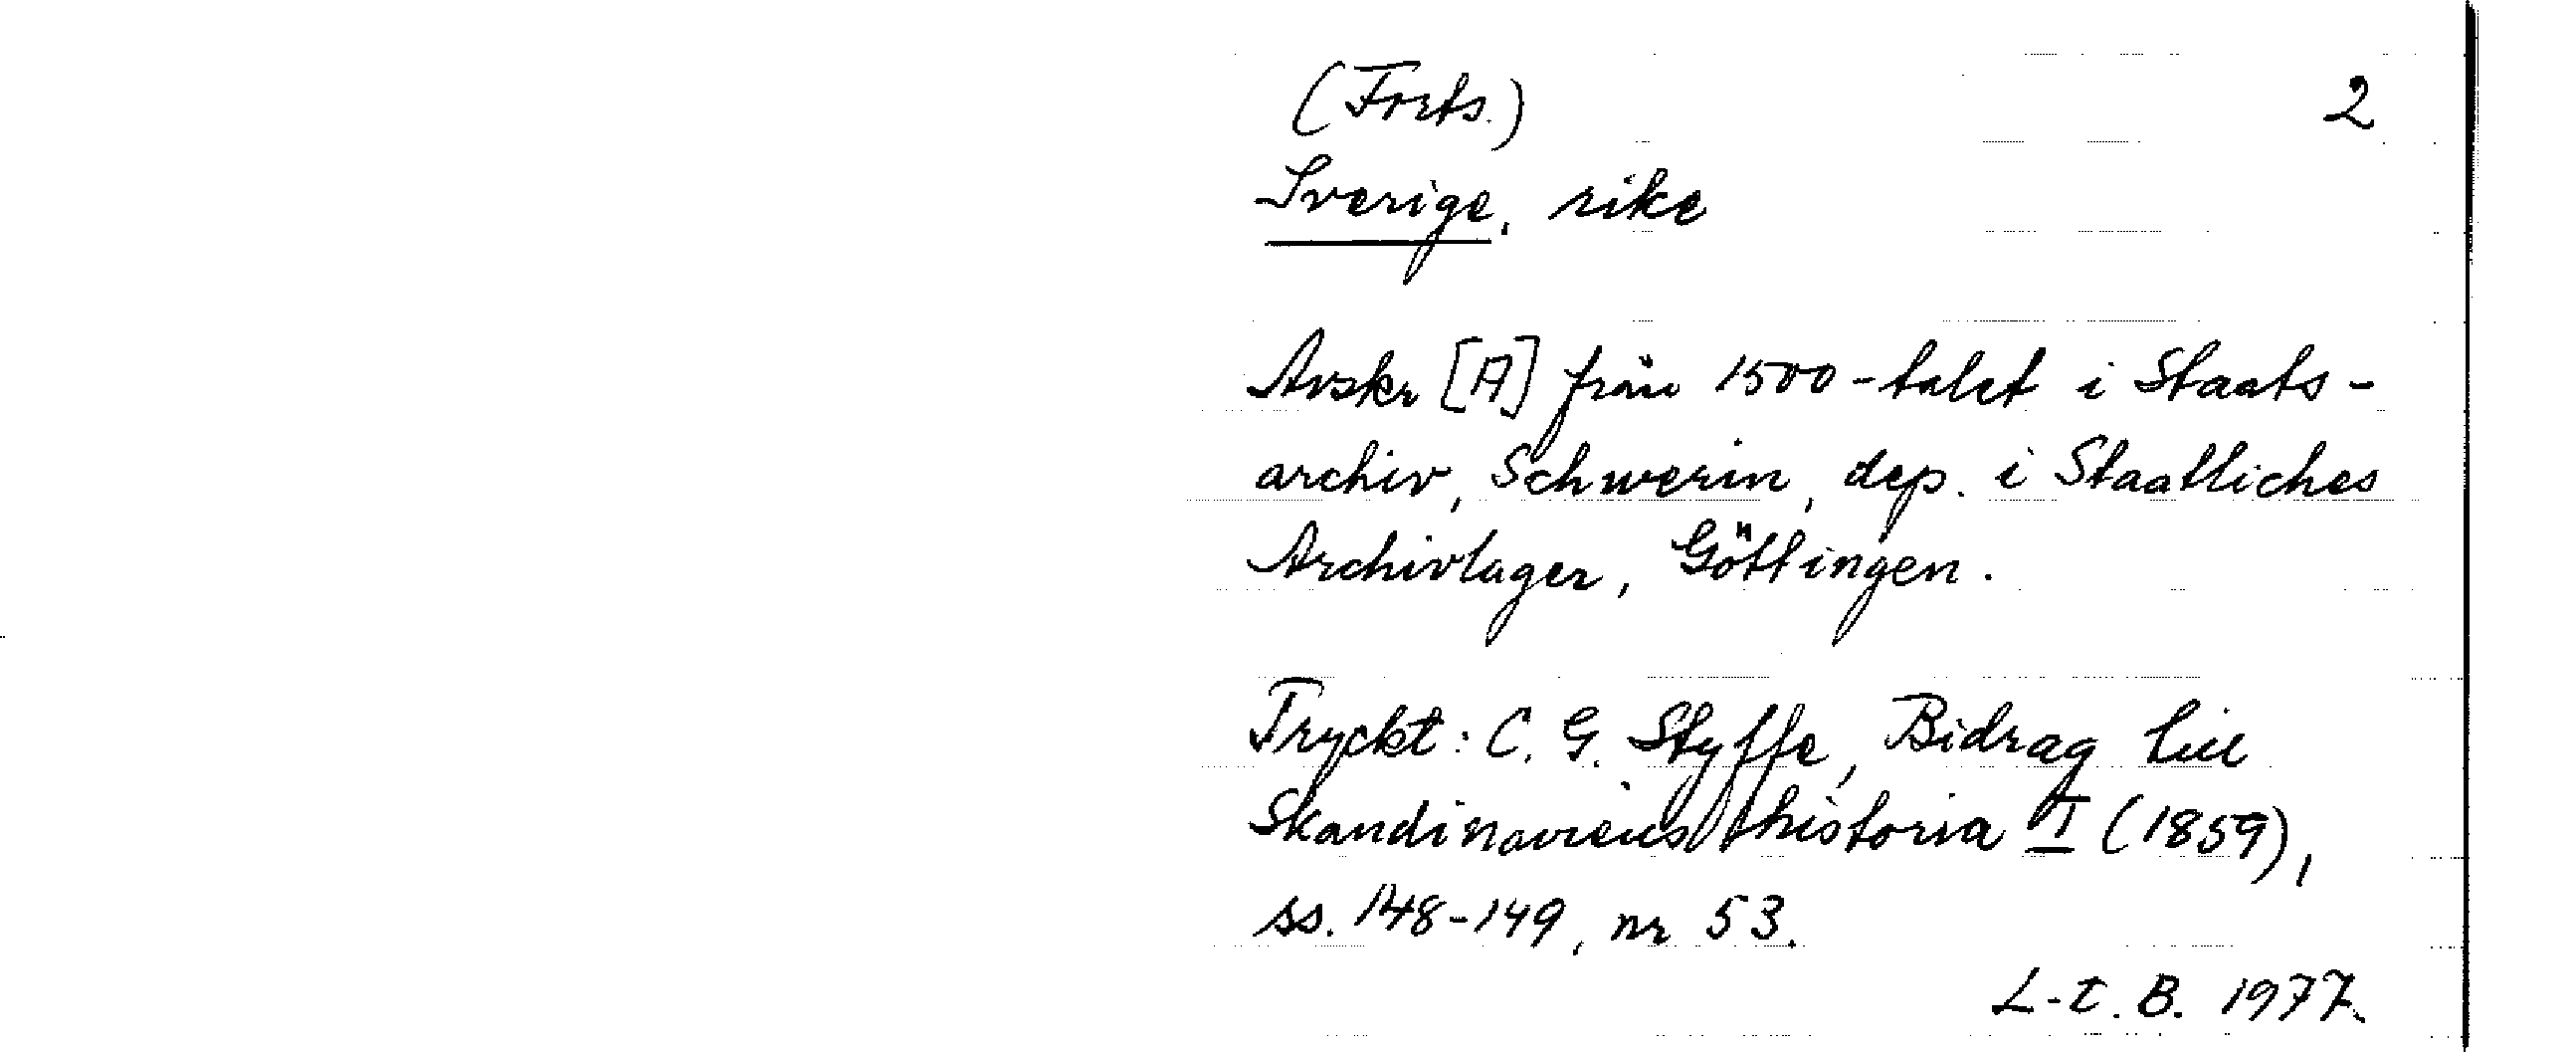 (Forts.) 2
Sverige, rike
Avskr [A] från 1500-talet i Staats-
archiv, Schwerin, dep. i Staatliches
Archivlager, Göttingen.
Tryckt: C. G. Styffe, Bidrag till
Skandinaviens historia I (1859),
ss. 148-149, nr 53.
L-t. B. 1977